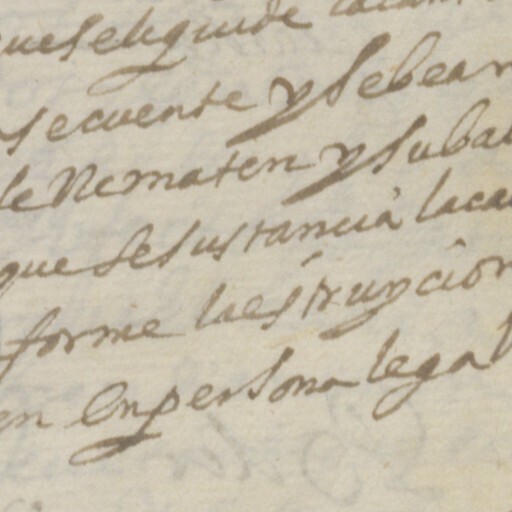 ueseliquide lacan
secuente y Sebean
le Rematen y Subal
que Se Sustancia laca
forme laestruycion
en EnperSona legal